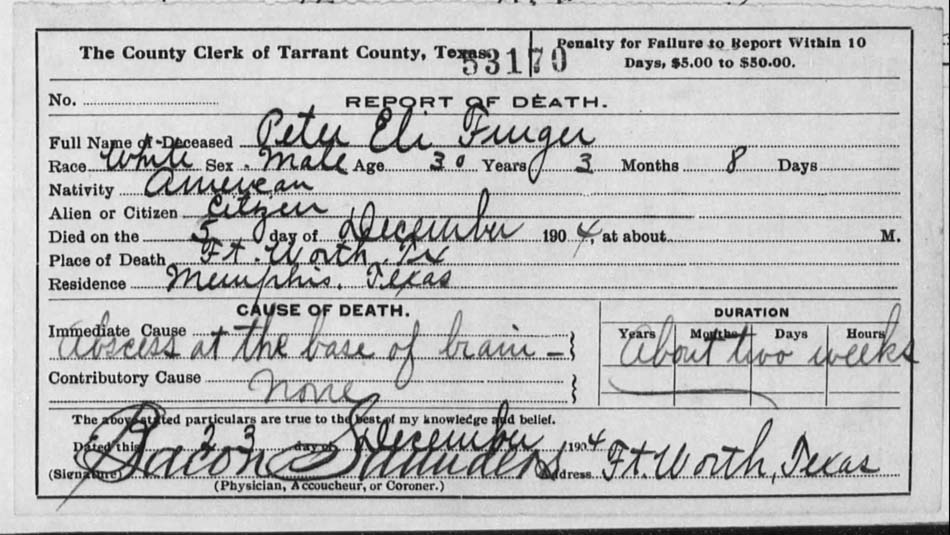 The County Clerk of Tarrant County, Texas. 53170
Penalty for Failure to Report Within 10
Days, $5.00 to $50.00.
No.
REPORT OF DEATH.
Full Name of Deceased Peter Eli Finger
Race White Sex Male Age 30 Years 3 Months 8 Days
Nativity American
Alien or Citizen Citizen
Died on the 5 day of December 1904, at about M.
Place of Death Ft. Worth, Tx
Residence Memphis, Texas
CAUSE OF DEATH.
Immediate Cause
Abscess at the base of brain –
Contributory Cause
none
DURATION
Years Months Days Hours
About two weeks
The above stated particulars are true to the best of my knowledge and belief.
Dated this 23 day of December 1904
(Signature) Bacon Saunders Address Ft. Worth, Texas
(Physician, Accoucheur, or Coroner.)